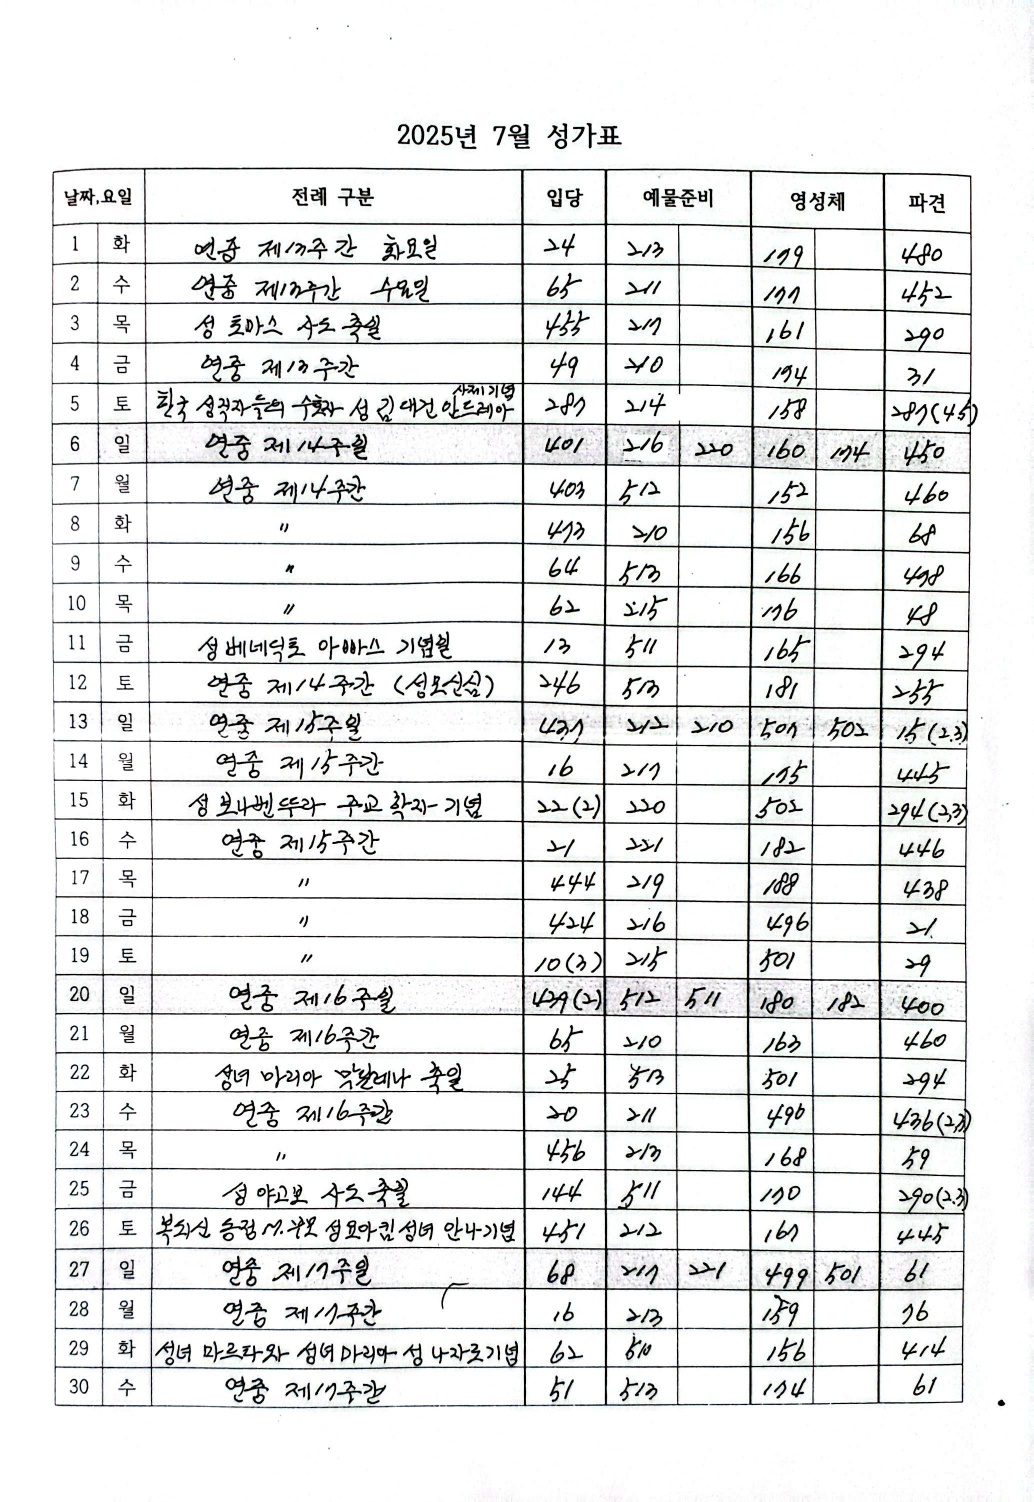 2025년 7월 성가표
날짜,요일 전례 구분 입당 예물준비 영성체 파견
1 화 연중 제13주간 화요일 24 213 179 480
2 수 연중 제13주간 수요일 65 211 177 452
3 목 성 토마스 사도 축일 455 217 161 290
4 금 연중 제13주간 49 210 174 31
5 토 한국 성직자들의 수호자 성 김대건 안드레아 사제기념 287 214 158 287(4.5)
6 일 연중 제14주일 401 216 220 160 174 450
7 월 연중 제14주간 403 512 152 460
8 화 〃 473 210 156 68
9 수 〃 64 513 166 478
10 목 〃 62 215 176 48
11 금 성 베네딕토 아빠스 기념일 13 511 165 294
12 토 연중 제14주간 (성모신심) 246 513 181 255
13 일 연중 제15주일 437 212 210 507 502 15(2.3)
14 월 연중 제15주간 16 217 175 445
15 화 성 보나벤뚜라 주교 학자 기념 22(2) 220 502 294(2,3)
16 수 연중 제15주간 21 221 182 446
17 목 〃 444 219 188 438
18 금 〃 424 216 496 21
19 토 〃 10(3) 215 501 29
20 일 연중 제16주일 439(2) 512 511 180 182 400
21 월 연중 제16주간 65 210 163 460
22 화 성녀 마리아 막달레나 축일 25 513 501 294
23 수 연중 제16주간 20 211 496 436(2,3)
24 목 〃 456 213 168 59
25 금 성 야고보 사도 축일 144 511 170 290(2.3)
26 토 복되신 동정 M.부모 성요아킴 성녀 안나기념 451 212 167 445
27 일 연중 제17주일 68 217 221 499 501 61
28 월 연중 제17주간 16 213 159 76
29 화 성녀 마르타와 성녀 마리아 성 나자로기념 62 510 156 414
30 수 연중 제17주간 51 513 174 61